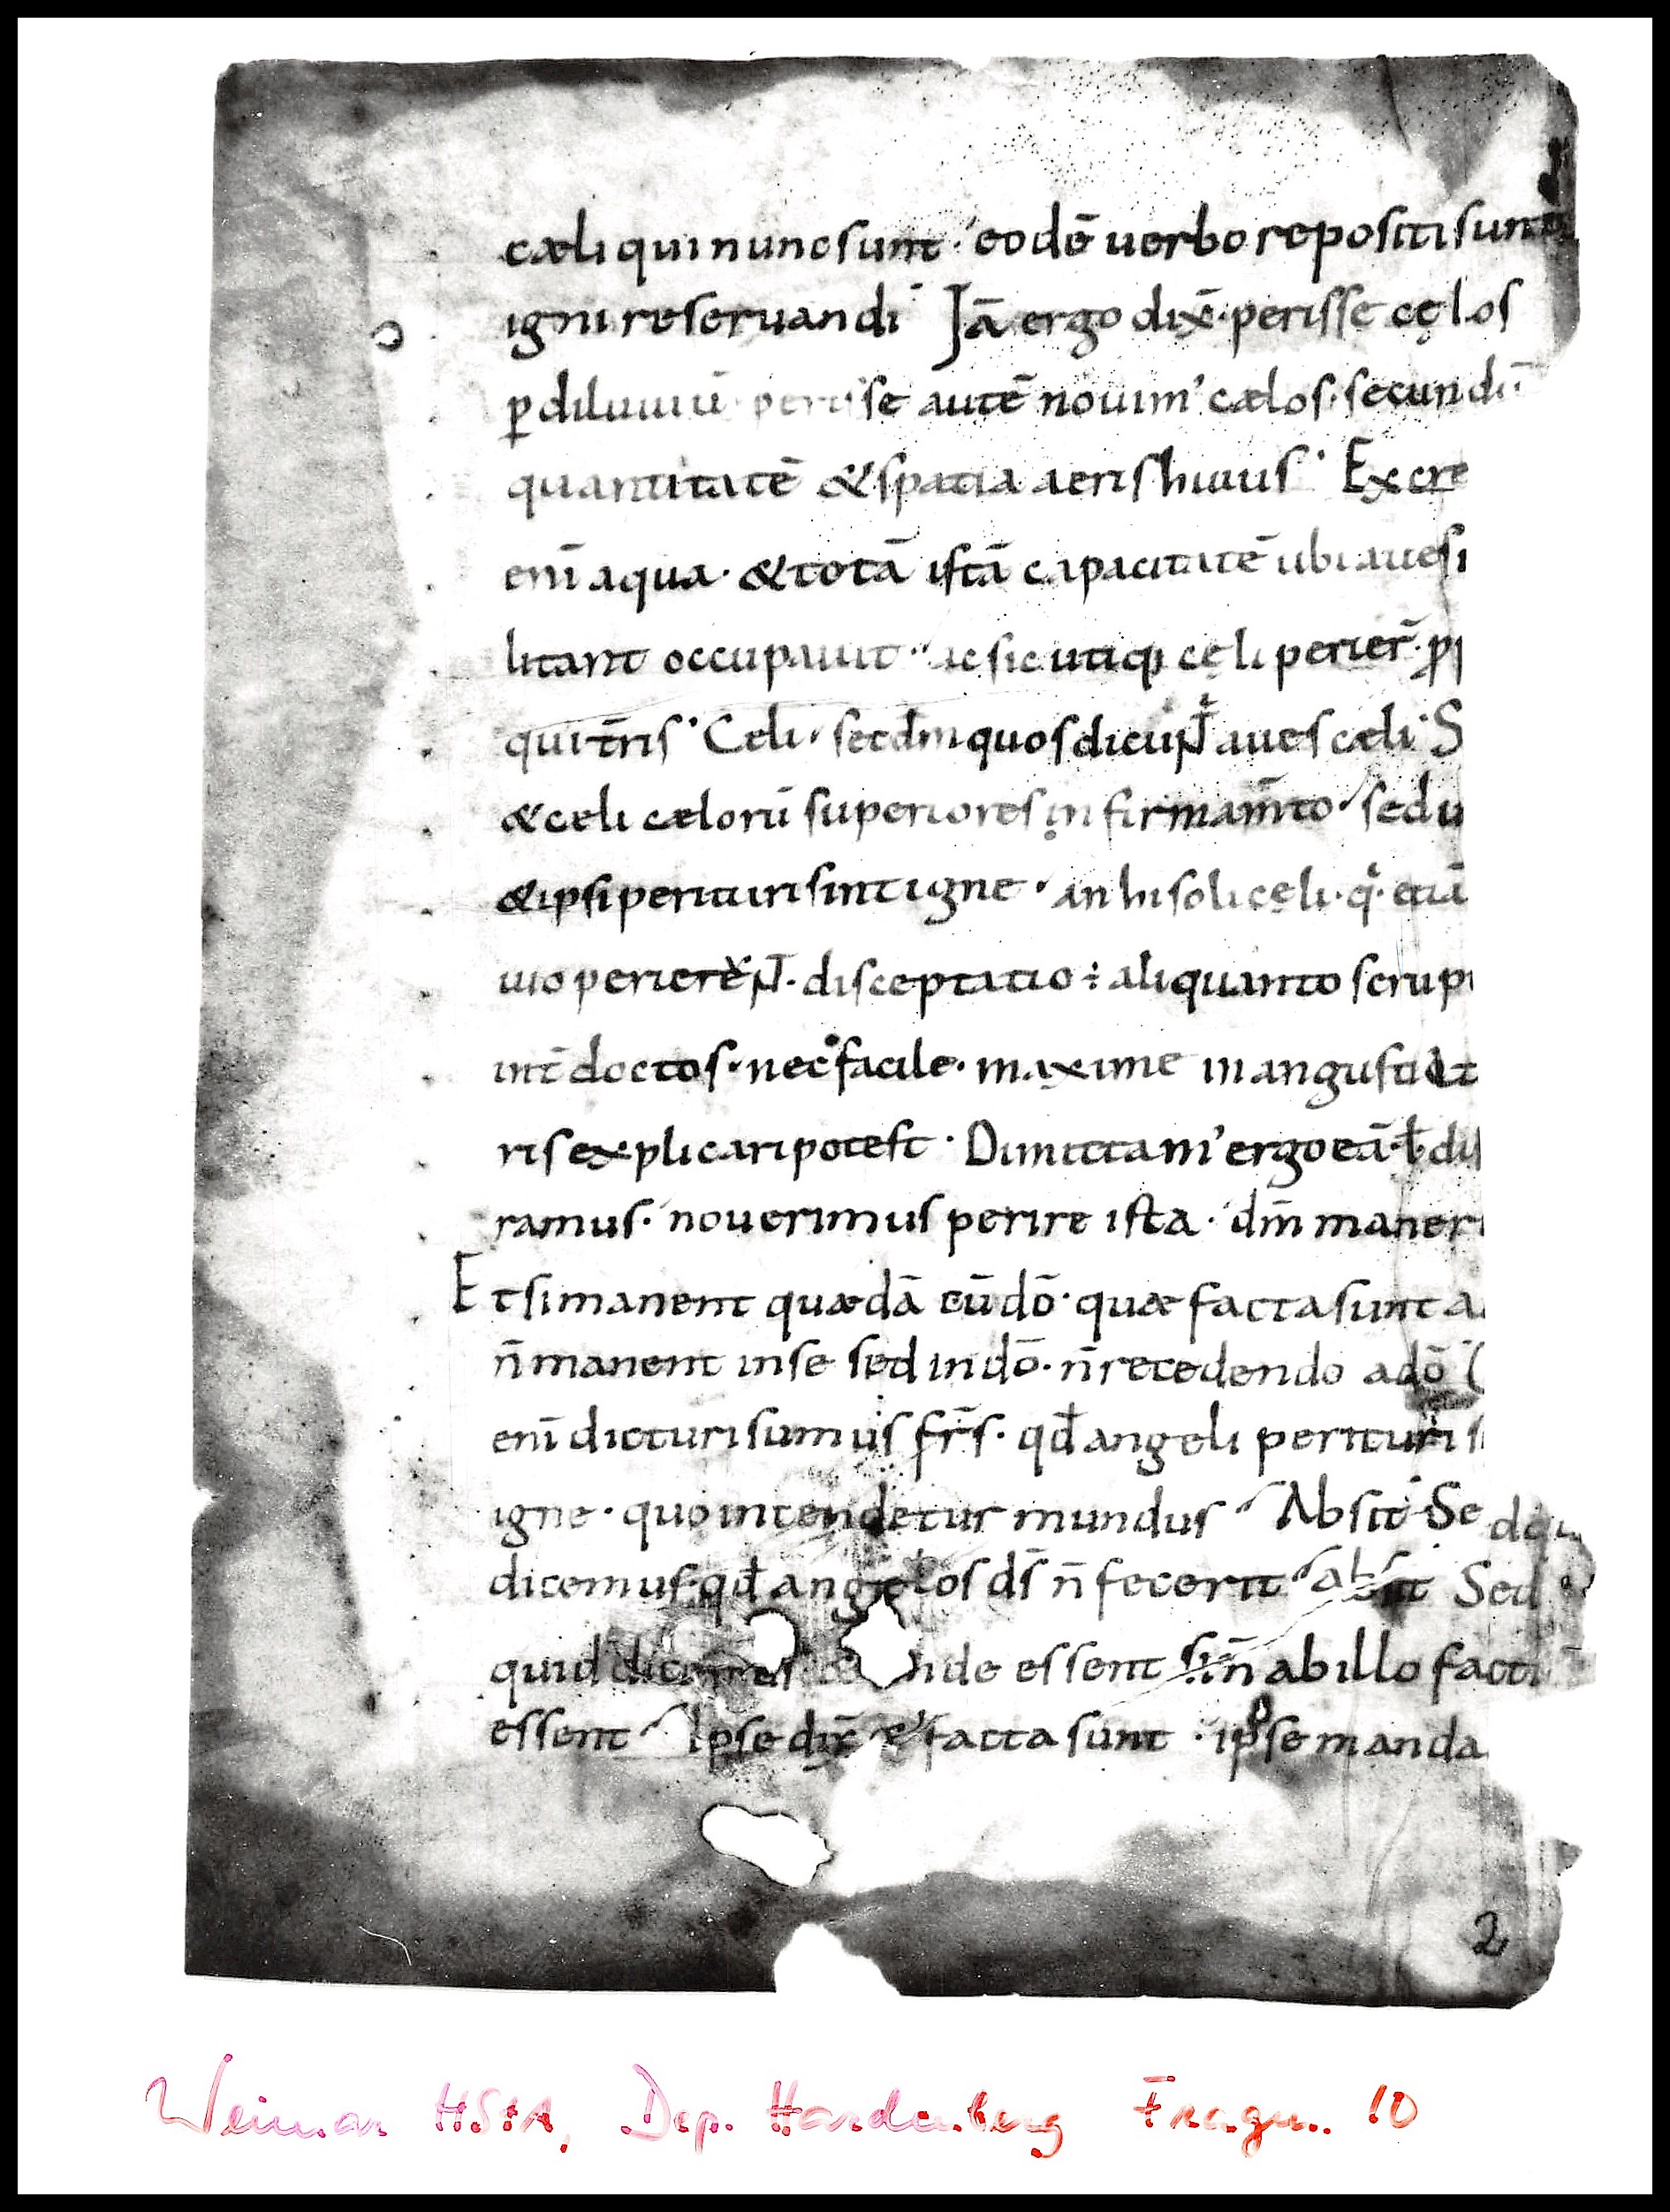 cæli qui nunc sunt · eodē uerbo repositi sunt
igni reseruandi · Iā ergo dix̄ · perisse cęlos
ꝑ diluuiū · perisse autē nouim' cælos · secundū
quantitatē & spatia aeris huius · Excre
enī aqua · & totā istā capacitatē ubi aues
litant occupauit · ac sic utiq; cęli perier̄ ·
qui tr̄is · Celi · secdm quos dicunt̄ aues cæli · S
& celi cælorū superiores in firmam̄to · sed u
& ipsi perituri sint igne · an hi soli cęli · q · etiā
uio perierēNT · disceptatio ÷ aliquanto scrup
int̄ doctos · nec facile · maxime in angusti
ris explicari potest · Dimittam' ergo eā · ł
ramus · nouerimus perire ista · dm̄ maner
Et si manent quædā cū dō · quæ facta sunt a
n̄ manent in se sed in dō · n̄ recedendo a dō
enī dicturi sumus fr̄s · qđ angeli perituri s
igne · quo intendetur mundus · Absit · Se
dicemus · qđ angelos ds̄ n̄ fecerit · absit Sed
quid dicemus nde essent si n̄ ab illo facti
essent · Ipse dix̄ & facta sunt · ipse manda
2
Weimar HStA, Dep. Hardenberg Fragm. 10